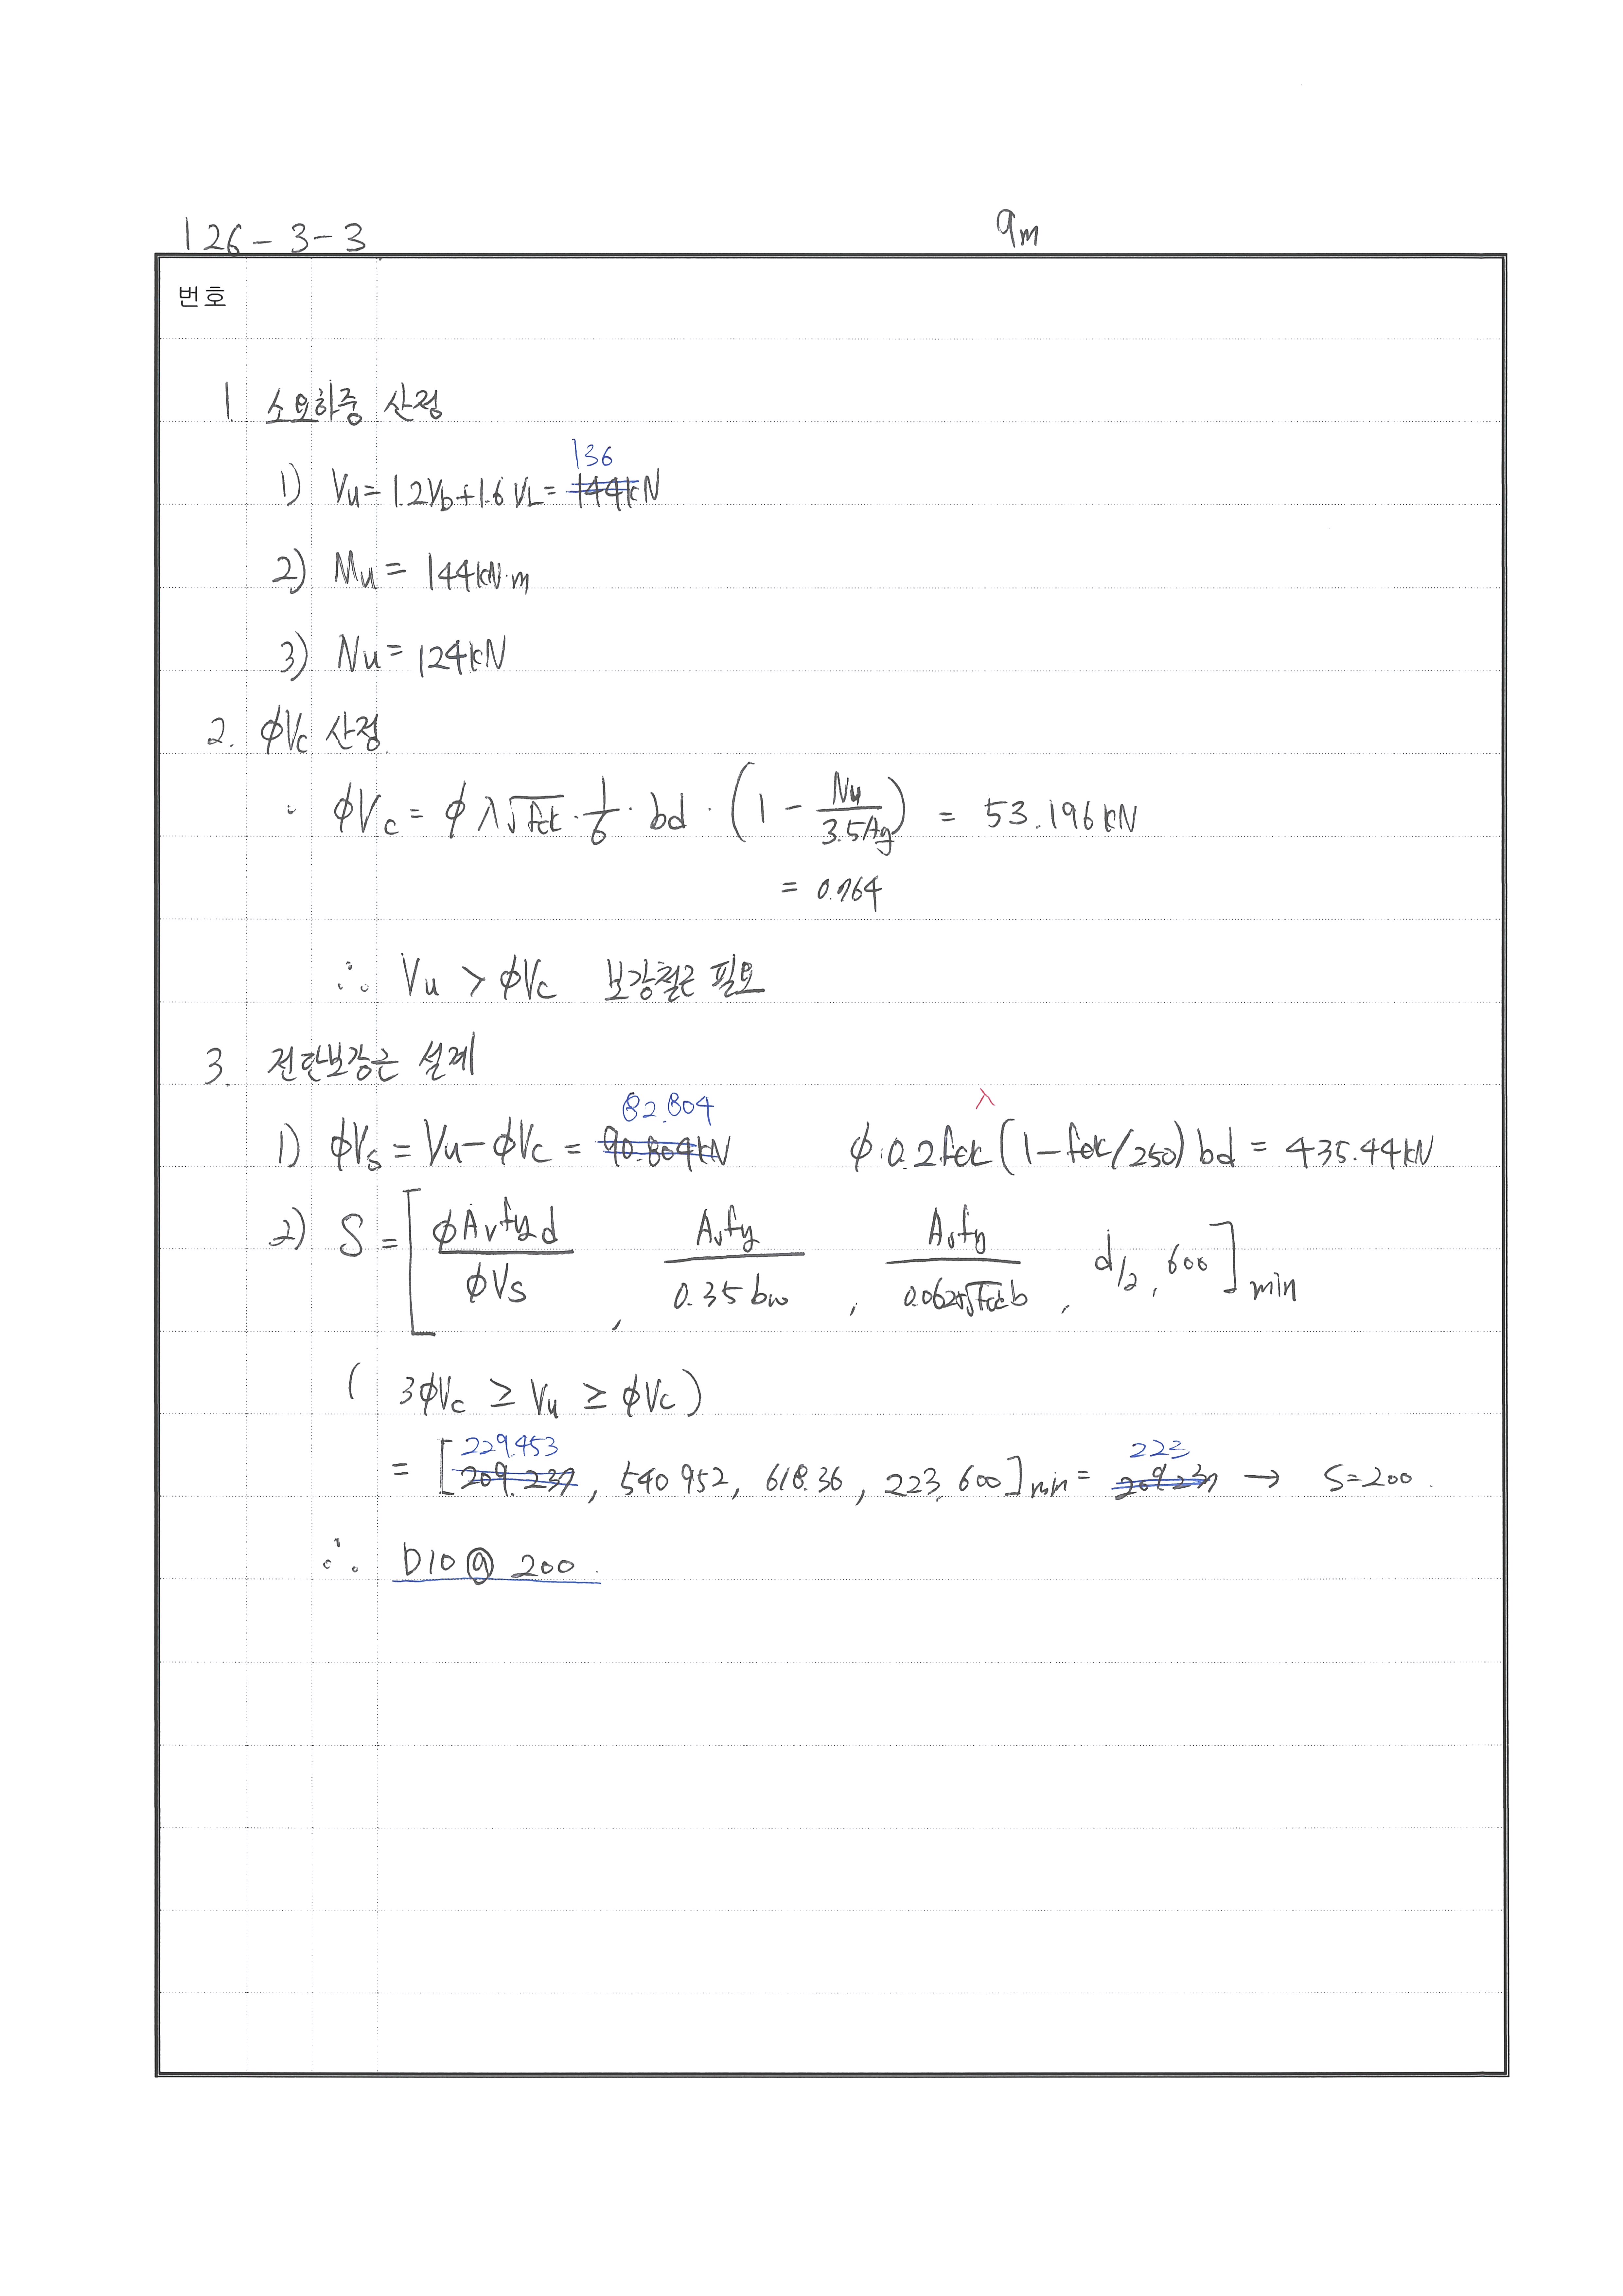 126-3-3
9m
번호
1. 소요하중 산정
136
1) Vu = 1.2VD + 1.6VL = 144kN
2) Mu = 144kN·m
3) Nu = 124kN
2. φVc 산정
· φVc = φ λ√fck · 1/6 · bd · (1 - Nu/3.5Ag) = 53.196kN
= 0.764
∴ Vu > φVc 보강철근 필요
3. 전단보강근 설계
82.804 λ
1) φVs = Vu - φVc = 90.804kN φ·0.2fck(1-fck/250)bd = 435.44kN
2) S = [φAvfyd/φVs, Avfy/0.35bw, Avfy/0.0625√fck b, d/2, 600]min
( 3φVc ≥ Vu ≥ φVc )
229.453 223
= [209.237, 540.952, 618.36, 223, 600]min = 209.237 → S=200.
∴ D10 @ 200.